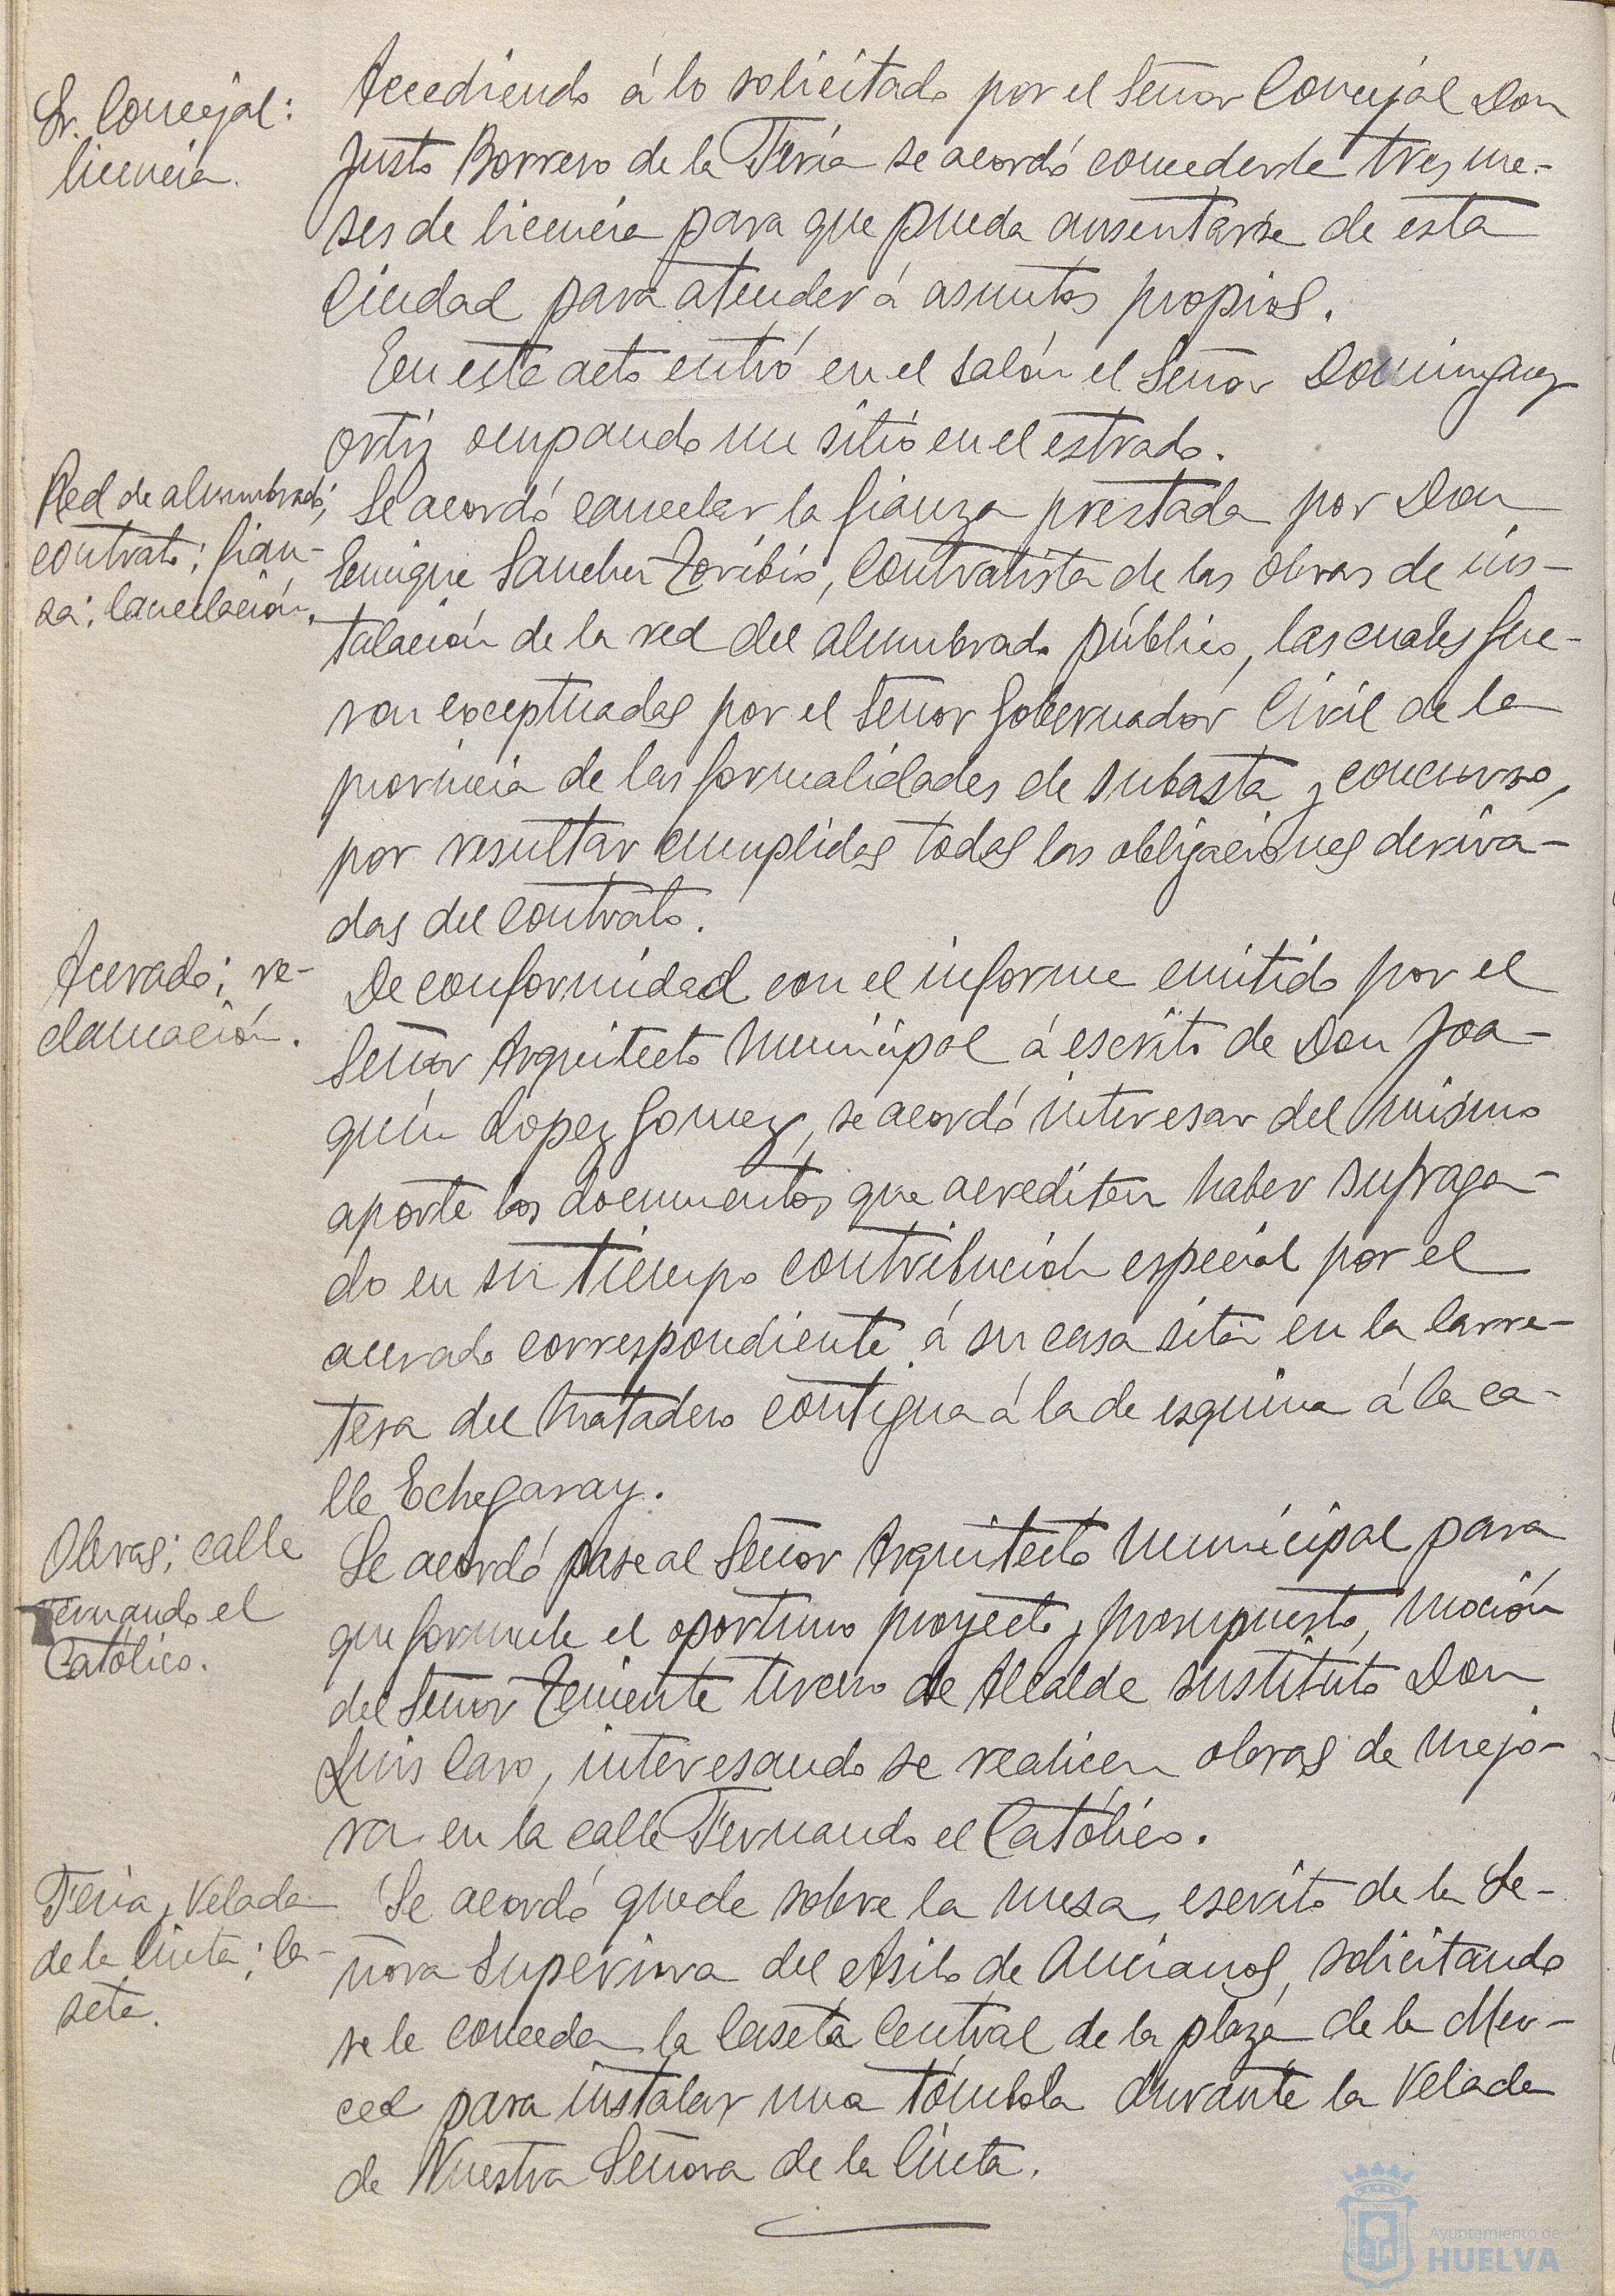 Sr. Concejal:
licencia.
Accediendo á lo solicitado por el Señor Concejal Don
Justo Borrero de la Feria se acordó concederle tres me-
ses de licencia para que pueda ausentarse de esta
Ciudad para atender á asuntos propios.
En este acto entró en el salón el Señor Dominguez
Ortiz ocupando un sitio en el estrado.
Red de alumbrado;
contrato; fian-
za; Cancelación.
Se acordó cancelar la fianza prestada por Don
Enrique Sanchez Toribio, Contratista de las obras de ins-
talación de la red del alumbrado público, las cuales fue-
ron exceptuadas por el Señor Gobernador Civil de la
provincia de las formalidades de subasta y concurso,
por resultar cumplidas todas las obligaciones deriva-
das del contrato.
Acerado; re-
clamación.
De conformidad con el informe emitido por el
Señor Arquitecto Municipal á escrito de Don Joa-
quín Lopez Gomez, se acordó interesar del mismo
aporte los documentos que acrediten haber sufraga-
do en su tiempo contribución especial por el
acerado correspondiente á su casa sita en la Carre-
tera del Matadero contigua á la de esquina á la ca-
lle Echegaray.
Obras; calle
Fernando el
Católico.
Se acordó pase al Señor Arquitecto Municipal para
que formule el oportuno proyecto y presupuesto, moción
del Señor Teniente tercero de Alcalde sustituto Don
Luis Caro, interesando se realicen obras de mejo-
ra en la calle Fernando el Católico.
Feria y Velada
de la Cinta; Ca-
seta.
Se acordó quede sobre la mesa, escrito de la Se-
ñora Superiora del Asilo de Ancianos, solicitando
se le conceda la Caseta Central de la plaza de la Mer-
ced para instalar una tómbola durante la Velada
de Nuestra Señora de la Cinta.
Ayuntamiento de
HUELVA